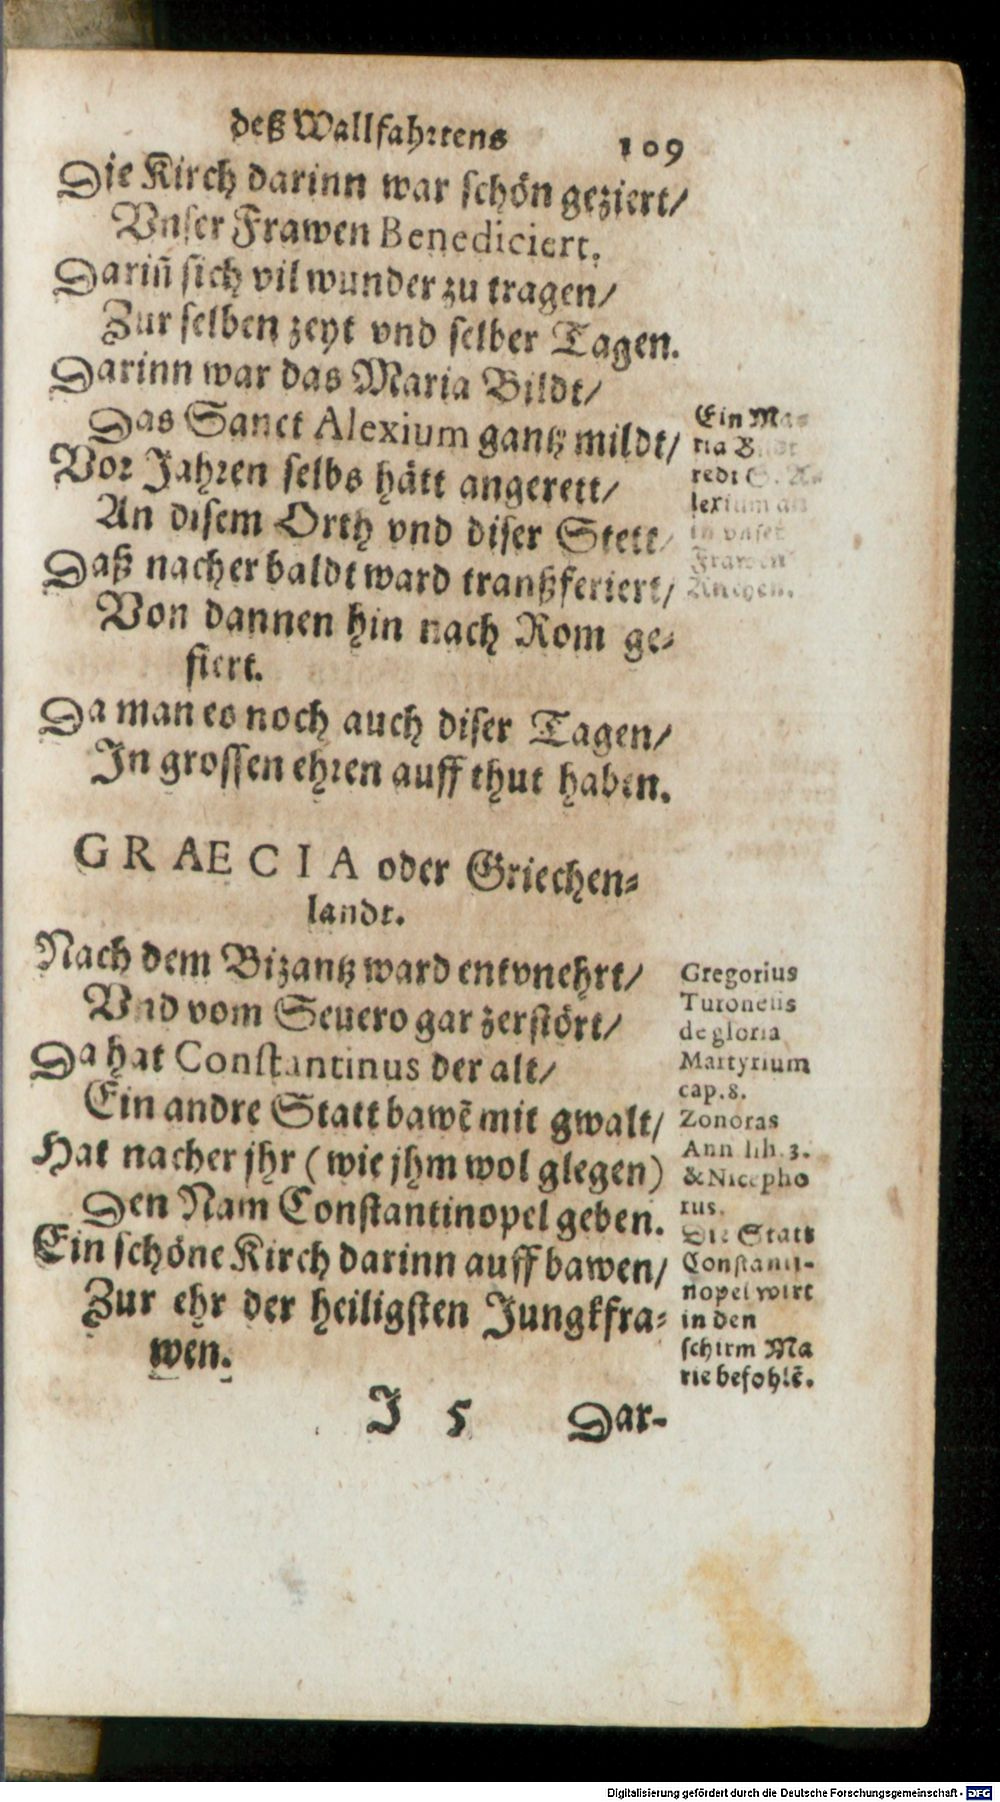 deß Wallfahrtens 109
Die Kirch darinn war schön geziert/
Vnser Frawen Benediciert.
Dariñ sich vil wunder zu tragen/
Zur selben zeyt vnd selber Tagen.
Darinn war das Maria Bildt/
Das Sanct Alexium gantz mildt/
Vor Jahren selbs hätt angerett/
An disem Orth vnd diser Stett/
Daß nacher baldt ward tranßferiert/
Von dannen hin nach Rom ge-
fiert.
Da man es noch auch diser Tagen/
In grossen ehren auff thut haben.
Ein Ma-
ria Bildt
redt S. A-
lexium an
in vnser
Frawen
GRAECIA oder Griechen-
landt.
Nach dem Bizantz ward entvnehrt/
Vnd vom Seuero gar zerstört/
Da hat Constantinus der alt/
Ein andre Statt bawē mit gwalt/
Hat nacher jhr (wie jhm wol glegen)
Den Nam Constantinopel geben.
Ein schöne Kirch darinn auff bawen/
Zur ehr der heiligsten Jungkfra-
wen.
Gregorius
Turonesis
de gloria
Martyrium
cap. 8.
Zonoras
Ann lib. 3.
& Nicepho
rus.
Die Statt
Constanti-
nopel wirt
in den
schirm Ma
rie befohlē.
I 5 Dar-
Digitalisierung gefördert durch die Deutsche Forschungsgemeinschaft - DFG